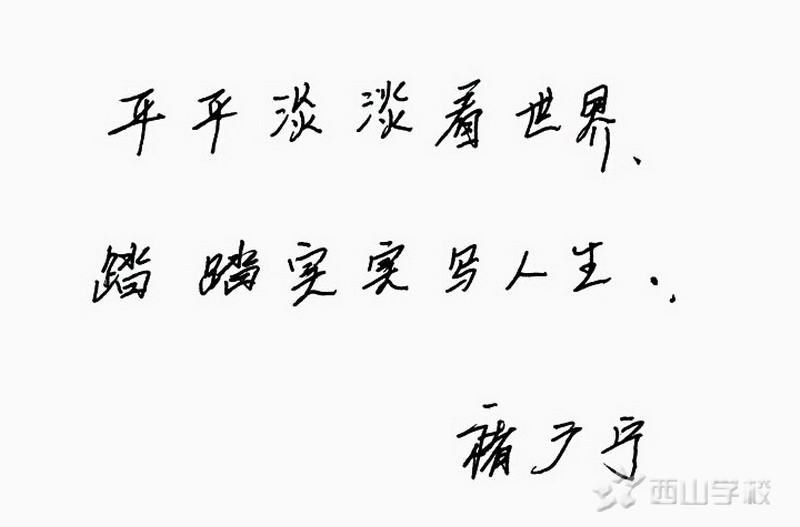 平平淡淡看世界、
踏踏实实写人生.
褚广宁
西山学校